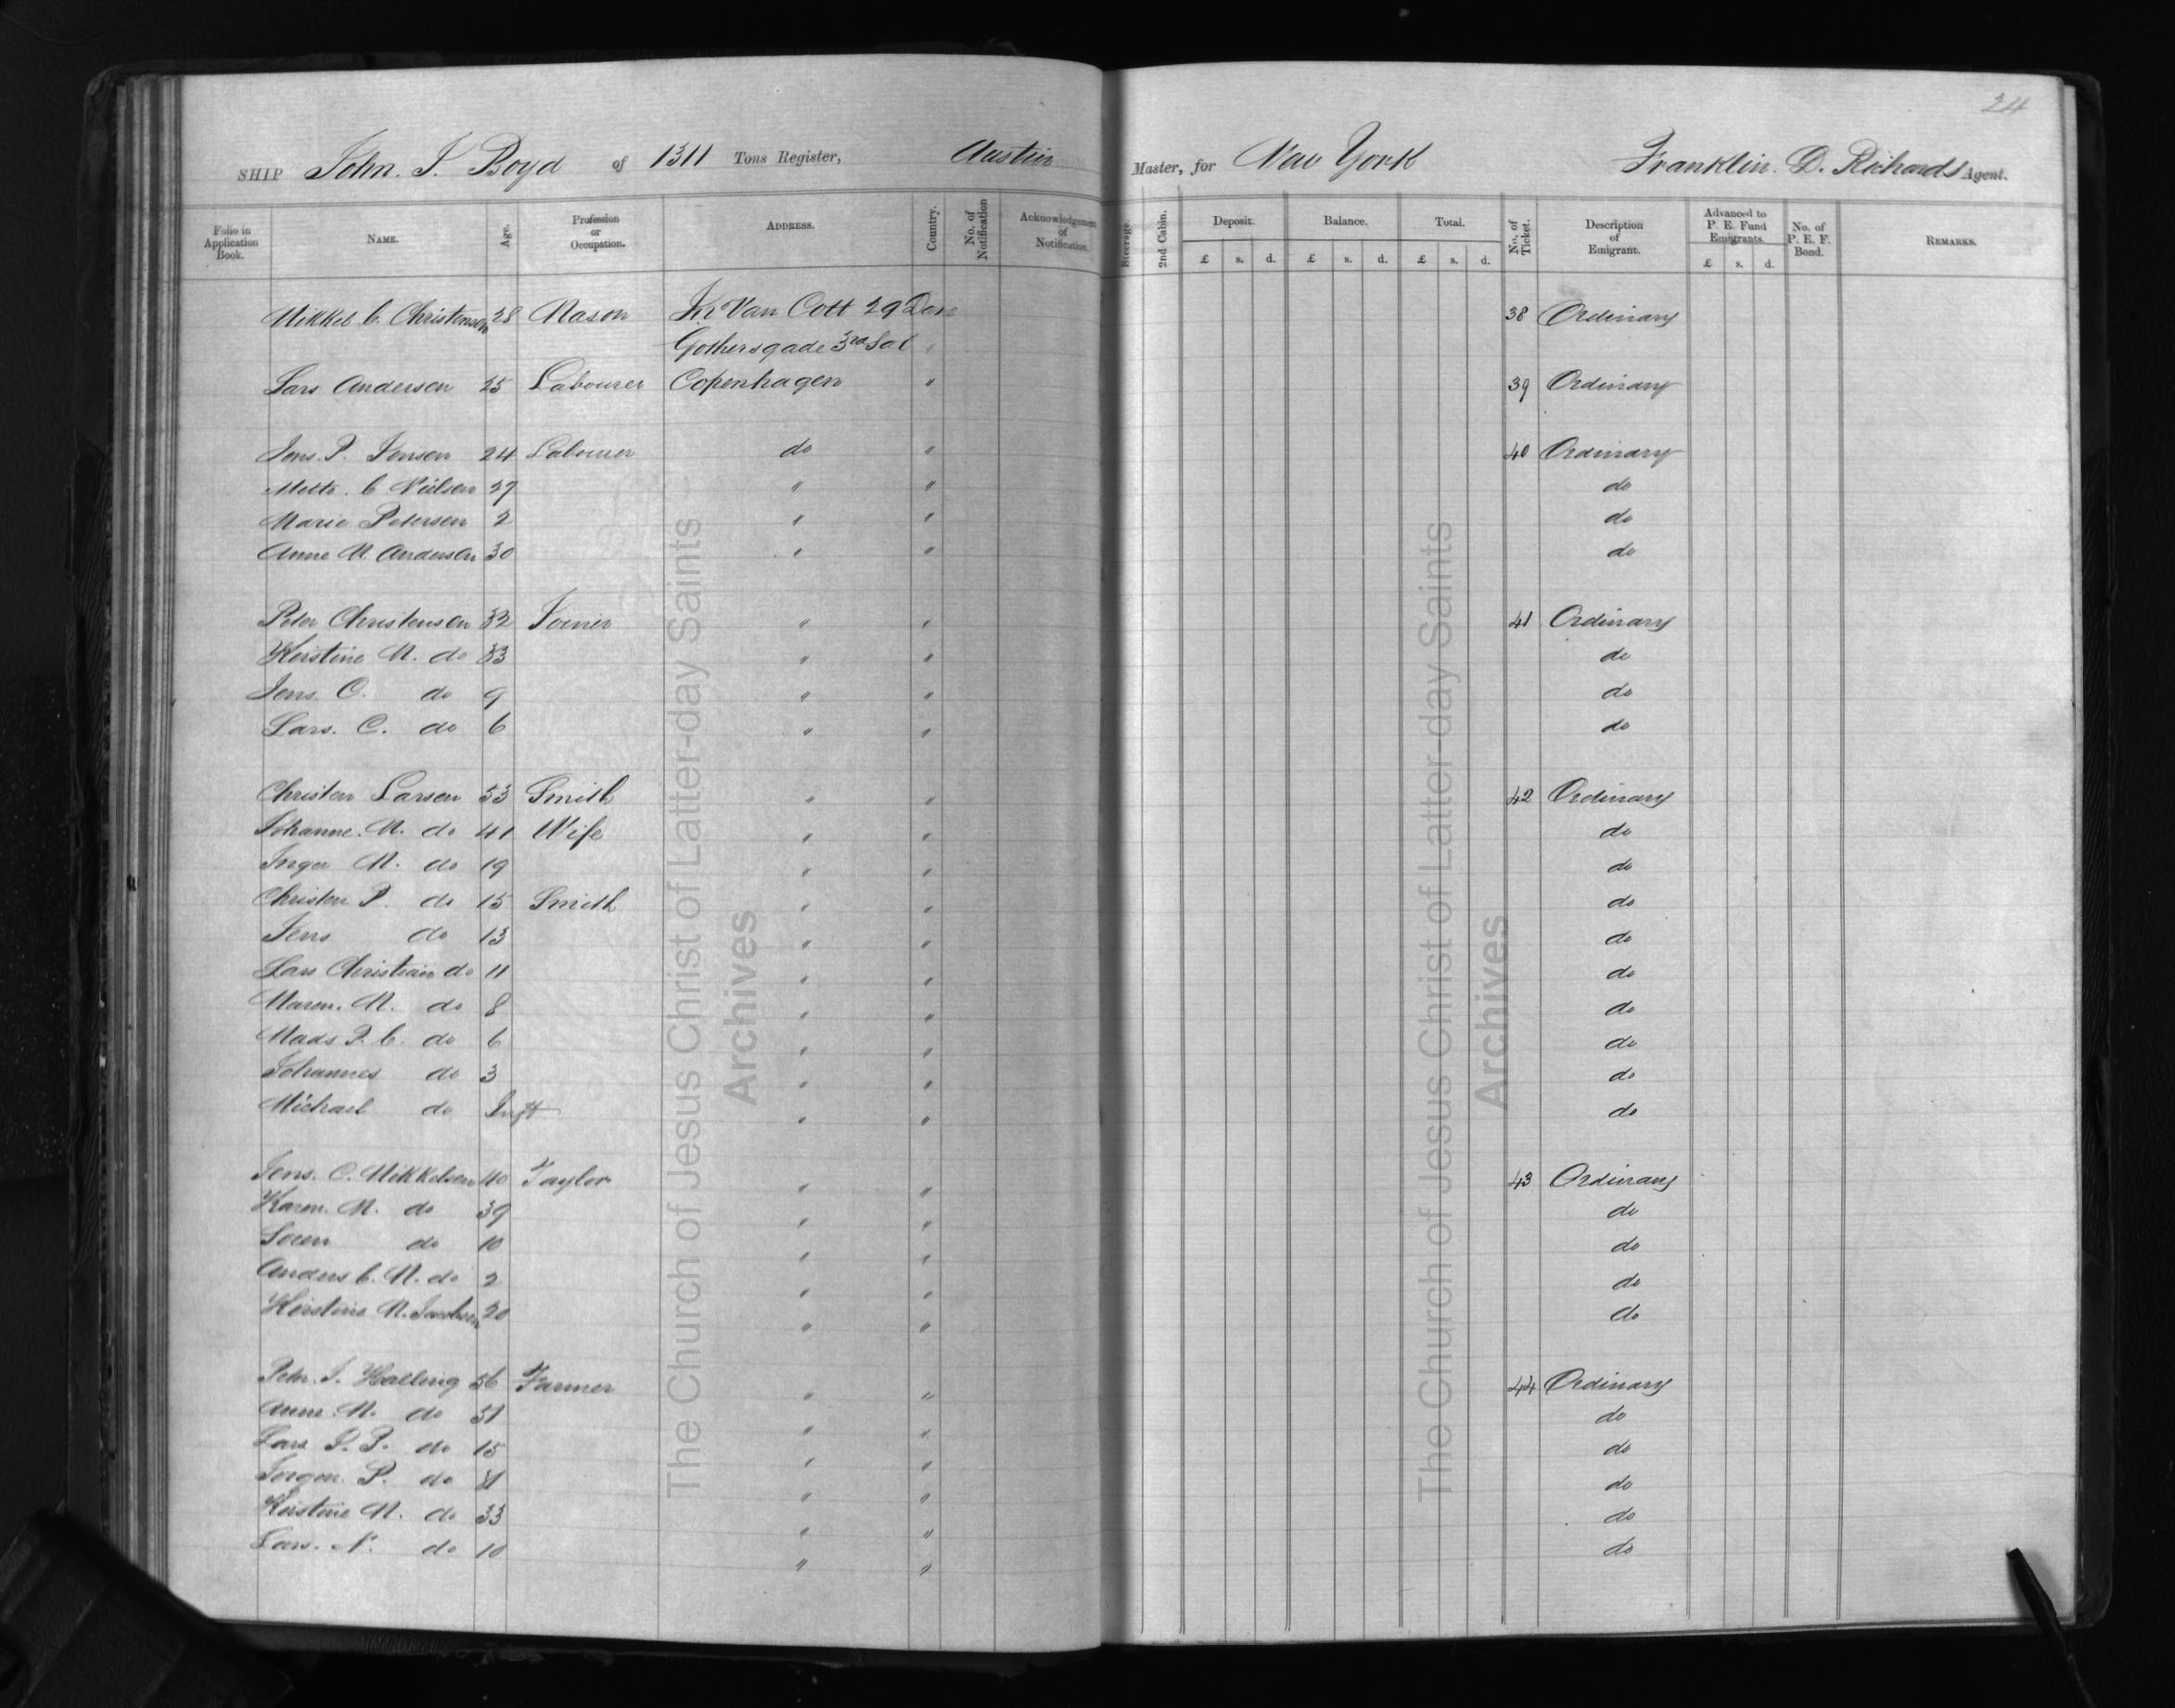 24
SHIP John. J. Boyd of 1311 Tons Register, Austin Master, for New York Franklin. D. Richards Agent.
Folio in Application Book. NAME. Age. Profession or Occupation. ADDRESS. Country. No. of Notification Acknowledgement of Notification. Steerage. 2nd Cabin. Deposit. £ s. d. Balance. £ s. d. Total. £ s. d. No. of Ticket. Description of Emigrant. Advanced to P. E. Fund Emigrants. £ s. d. No. of P. E. F. Bond. REMARKS.
Mikkel C. Christensen 28 Mason Van Cott 29 38 Ordinary
Gothersgade 3rd Sal "
Lars Andersen 25 Labourer Copenhagen " 39 Ordinary
Jens. P. Jensen 24 Labourer do " 40 Ordinary
Mette. C Nielsen 27 " " do
Marie Petersen 2 " " do
Anne M. Andersen 30 " " do
Peter Christensen 32 Joiner " " 41 Ordinary
Kerstine M. do 33 " " do
Jens. C. do 9 " " do
Lars. C. do 6 " " do
Christen Larsen 53 Smith " " 42 Ordinary
Johanne. M. do 41 Wife " " do
Inger M. do 19 " " do
Christen P. do 15 Smith " " do
Jens do 13 " " do
Lars Christian do 11 " " do
Maren. M. do 8 " " do
Mads P. C. do 6 " " do
Johannes do 3 " " do
Michael do Inft " " do
Jens. C. Mikkelsen 40 Taylor " " 43 Ordinary
Karen. M. do 39 " " do
Soren do 10 " " do
Anders C. M. do 2 " " do
Kerstine M. Jacobsen 20 " " do
Peter. J. Halling 56 Farmer " " 44 Ordinary
Anne M. do 31 " " do
Lars P. P. do 15 " " do
Jorgen. P. do " " do
Kerstine M. do 33 " " do
Lars. N. do 10 " " do
The Church of Jesus Christ of Latter-day Saints
Archives
The Church of Jesus Christ of Latter-day Saints
Archives